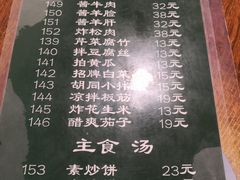 149 酱牛肉 32元
150 酱羊脸 38元
151 酱羊肝 32元
152 炸松肉 38元
139 芹菜腐竹 13元
140 拌豆腐丝 13元
141 拍黄瓜 13元
142 招牌白菜 15元
143 胡同小拌 15元
144 凉拌板筋 19元
145 炸花生米 13元
146 醋爽茄子 19元
主食 汤
153 素炒饼 23元